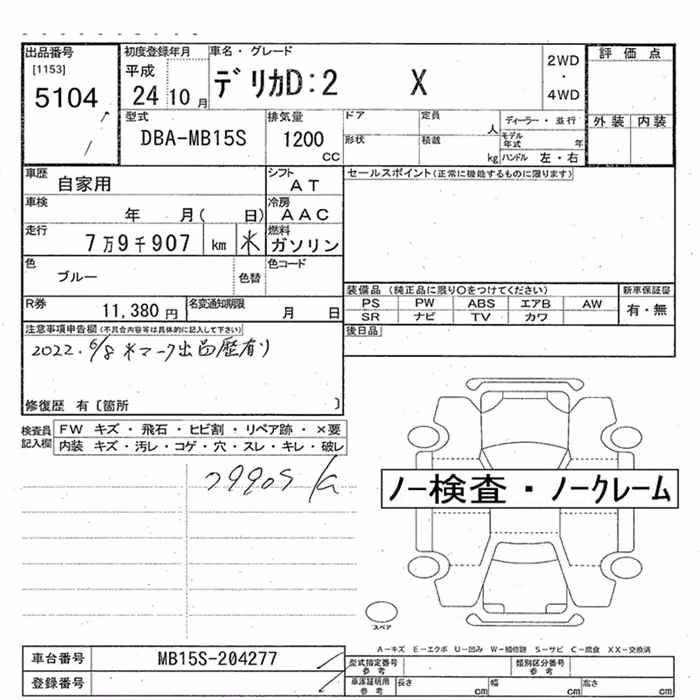 出品番号
[1153]
5104
初度登録年月
平成
24 10 月
車名・グレード
デリカD:2 X
2WD
・
4WD
評価点
外装 内装
型式
DBA-MB15S
排気量
1200
CC
ドア
定員
人
ディーラー・並行
モデル年式 年
形状
積載
kg
ハンドル 左・右
車歴
自家用
シフト
AT
セールスポイント(正常に機能するものに限ります)
車検
年 月( 日)
冷房
AAC
走行
7万9千907 km 米
燃料
ガソリン
色
ブルー
色替
色コード
装備品 (純正品に限り○をつけてください)
新車保証書
PS PW ABS エアB AW
SR ナビ TV カワ
有・無
R券
11,380 円
名変通知期限
月 日
後日品
注意事項申告欄(不具合内容等は具体的に記入して下さい)
2022. 6/8 米マーク出品歴有り
修復歴 有〔箇所 〕
検査員記入欄
FW キズ・飛石・ヒビ割・リペア跡・×要
内装 キズ・汚レ・コゲ・穴・スレ・キレ・破レ
ノー検査・ノークレーム
スペア
A-キズ E-エクボ U-凹み W-補修跡 S-サビ C-腐食 XX-交換済
車台番号
MB15S-204277
型式指定番号 参考
類別区分番号 参考
登録番号
車庫証明用 参考
長さ cm
幅 cm
高さ cm